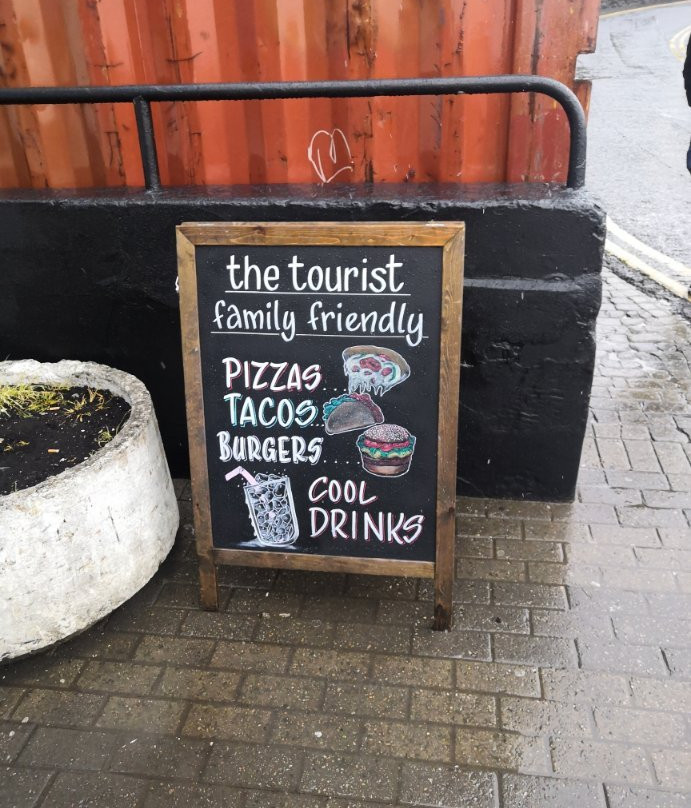 the tourist
family friendly
PIZZAS...
TACOS...
BURGERS.....
COOL
DRINKS